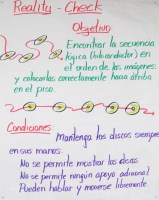 Reality - Check
Objetivo
Encontrar la secuencia
lógica (hilo conductor) en
el orden de las imágenes
y colocarlas correctamente hacia arriba
en el piso.
Condiciones
Mantenga los discos siempre
en sus manos.
No se permite mostrar los discos
No se permite ningún apoyo adicional
Pueden hablar y moverse libremente